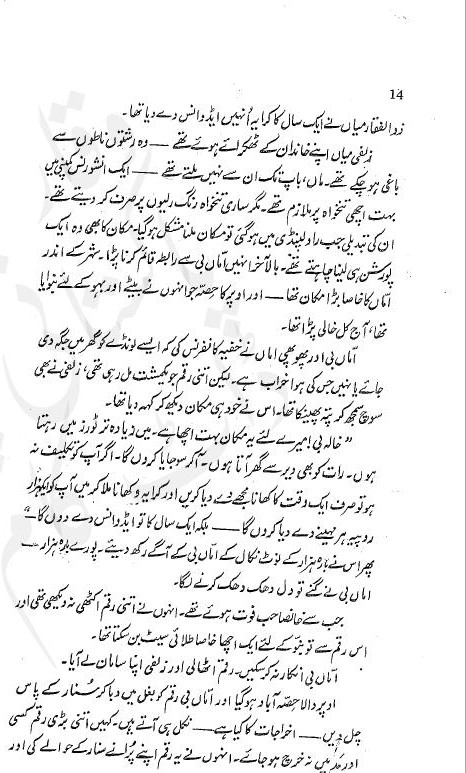 14
ذوالفقار میاں نے ایک سال کا کرایہ اُنہیں ایڈوانس دے دیا تھا۔
زلفی میاں اپنے خاندان کے ٹھکرائے ہوئے تھے —— وہ رشتوں ناطوں سے
باغی ہو چکے تھے۔ ماں، باپ تک ان سے نہیں ملتے تھے —— ایک انشورنس کمپنی میں
بہت اچھی تنخواہ پر ملازم تھے۔ مگر ساری تنخواہ رنگ رلیوں پر صرف کر دیتے تھے۔
ان کی تبدیلی جب راولپنڈی میں ہو گئی تو مکان ملنا مشکل ہو گیا۔ مکان کا بھی وہ ایک
پورشن ہی لینا چاہتے تھے۔ بالآخر انہیں اماں بی سے رابطہ قائم کرنا پڑا۔ شہر کے اندر
اماں کا خاصا بڑا مکان تھا —— اور اوپر کا حصہ جو انہوں نے بیٹے اور بہو کے لئے بنوایا
تھا، آج کل خالی پڑا تھا۔
اماں بی اور پھوپھی اماں نے خفیہ کانفرنس کی کہ ایسے لونڈے کو گھر میں جگہ دی
جائے یا نہیں جس کی ہوا خراب ہے۔ لیکن اتنی رقم جو یکمشت مل رہی تھی، زلفی نے بھی
سوچ سمجھ کر پتہ پھینکا تھا۔ اس نے خود ہی مکان دیکھ کر کہہ دیا تھا۔
”خالہ بی! میرے لئے یہ مکان بہت اچھا ہے۔ میں زیادہ تر ٹورز میں رہتا
ہوں۔ رات کو بھی دیر سے گھر آتا ہوں۔ آ کر سو جایا کروں گا۔ اگر آپ کو تکلیف نہ
ہو تو صرف ایک وقت کا کھانا مجھے دے دیا کریں اور کرایہ و کھانا ملا کر میں آپ کو ایکہزار
روپیہ ہر مہینے دے دیا کروں گا —— بلکہ ایک سال کا تو ایڈوانس دے دوں گا“
پھر اس نے بارہ ہزار کے نوٹ نکال کے اماں بی کے آگے رکھ دیئے۔ پورے بارہ ہزار ——
اماں بی نے گنے تو دل دھک دھک کرنے لگا۔
جب سے خانصاحب فوت ہوئے تھے۔ انہوں نے اتنی رقم اکٹھی نہ دیکھی تھی اور
اس رقم سے تو بنّو کے لئے ایک اچھا خاصا طلائی سیٹ بن سکتا تھا۔
اماں بی انکار نہ کر سکیں۔ رقم اٹھا لی اور زلفی اپنا سامان لے آیا۔
اوپر والا حصہ آباد ہو گیا اور اماں بی رقم کو بغل میں دبا کر سُنار کے پاس
چل دیں —— اخراجات کا کیا ہے —— نکل ہی آتے ہیں۔ کہیں اتنی بڑی رقم کسی
اور مد میں نہ خرچ ہو جائے۔ انہوں نے یہ رقم اپنے پرانے سنار کے حوالے کی اور